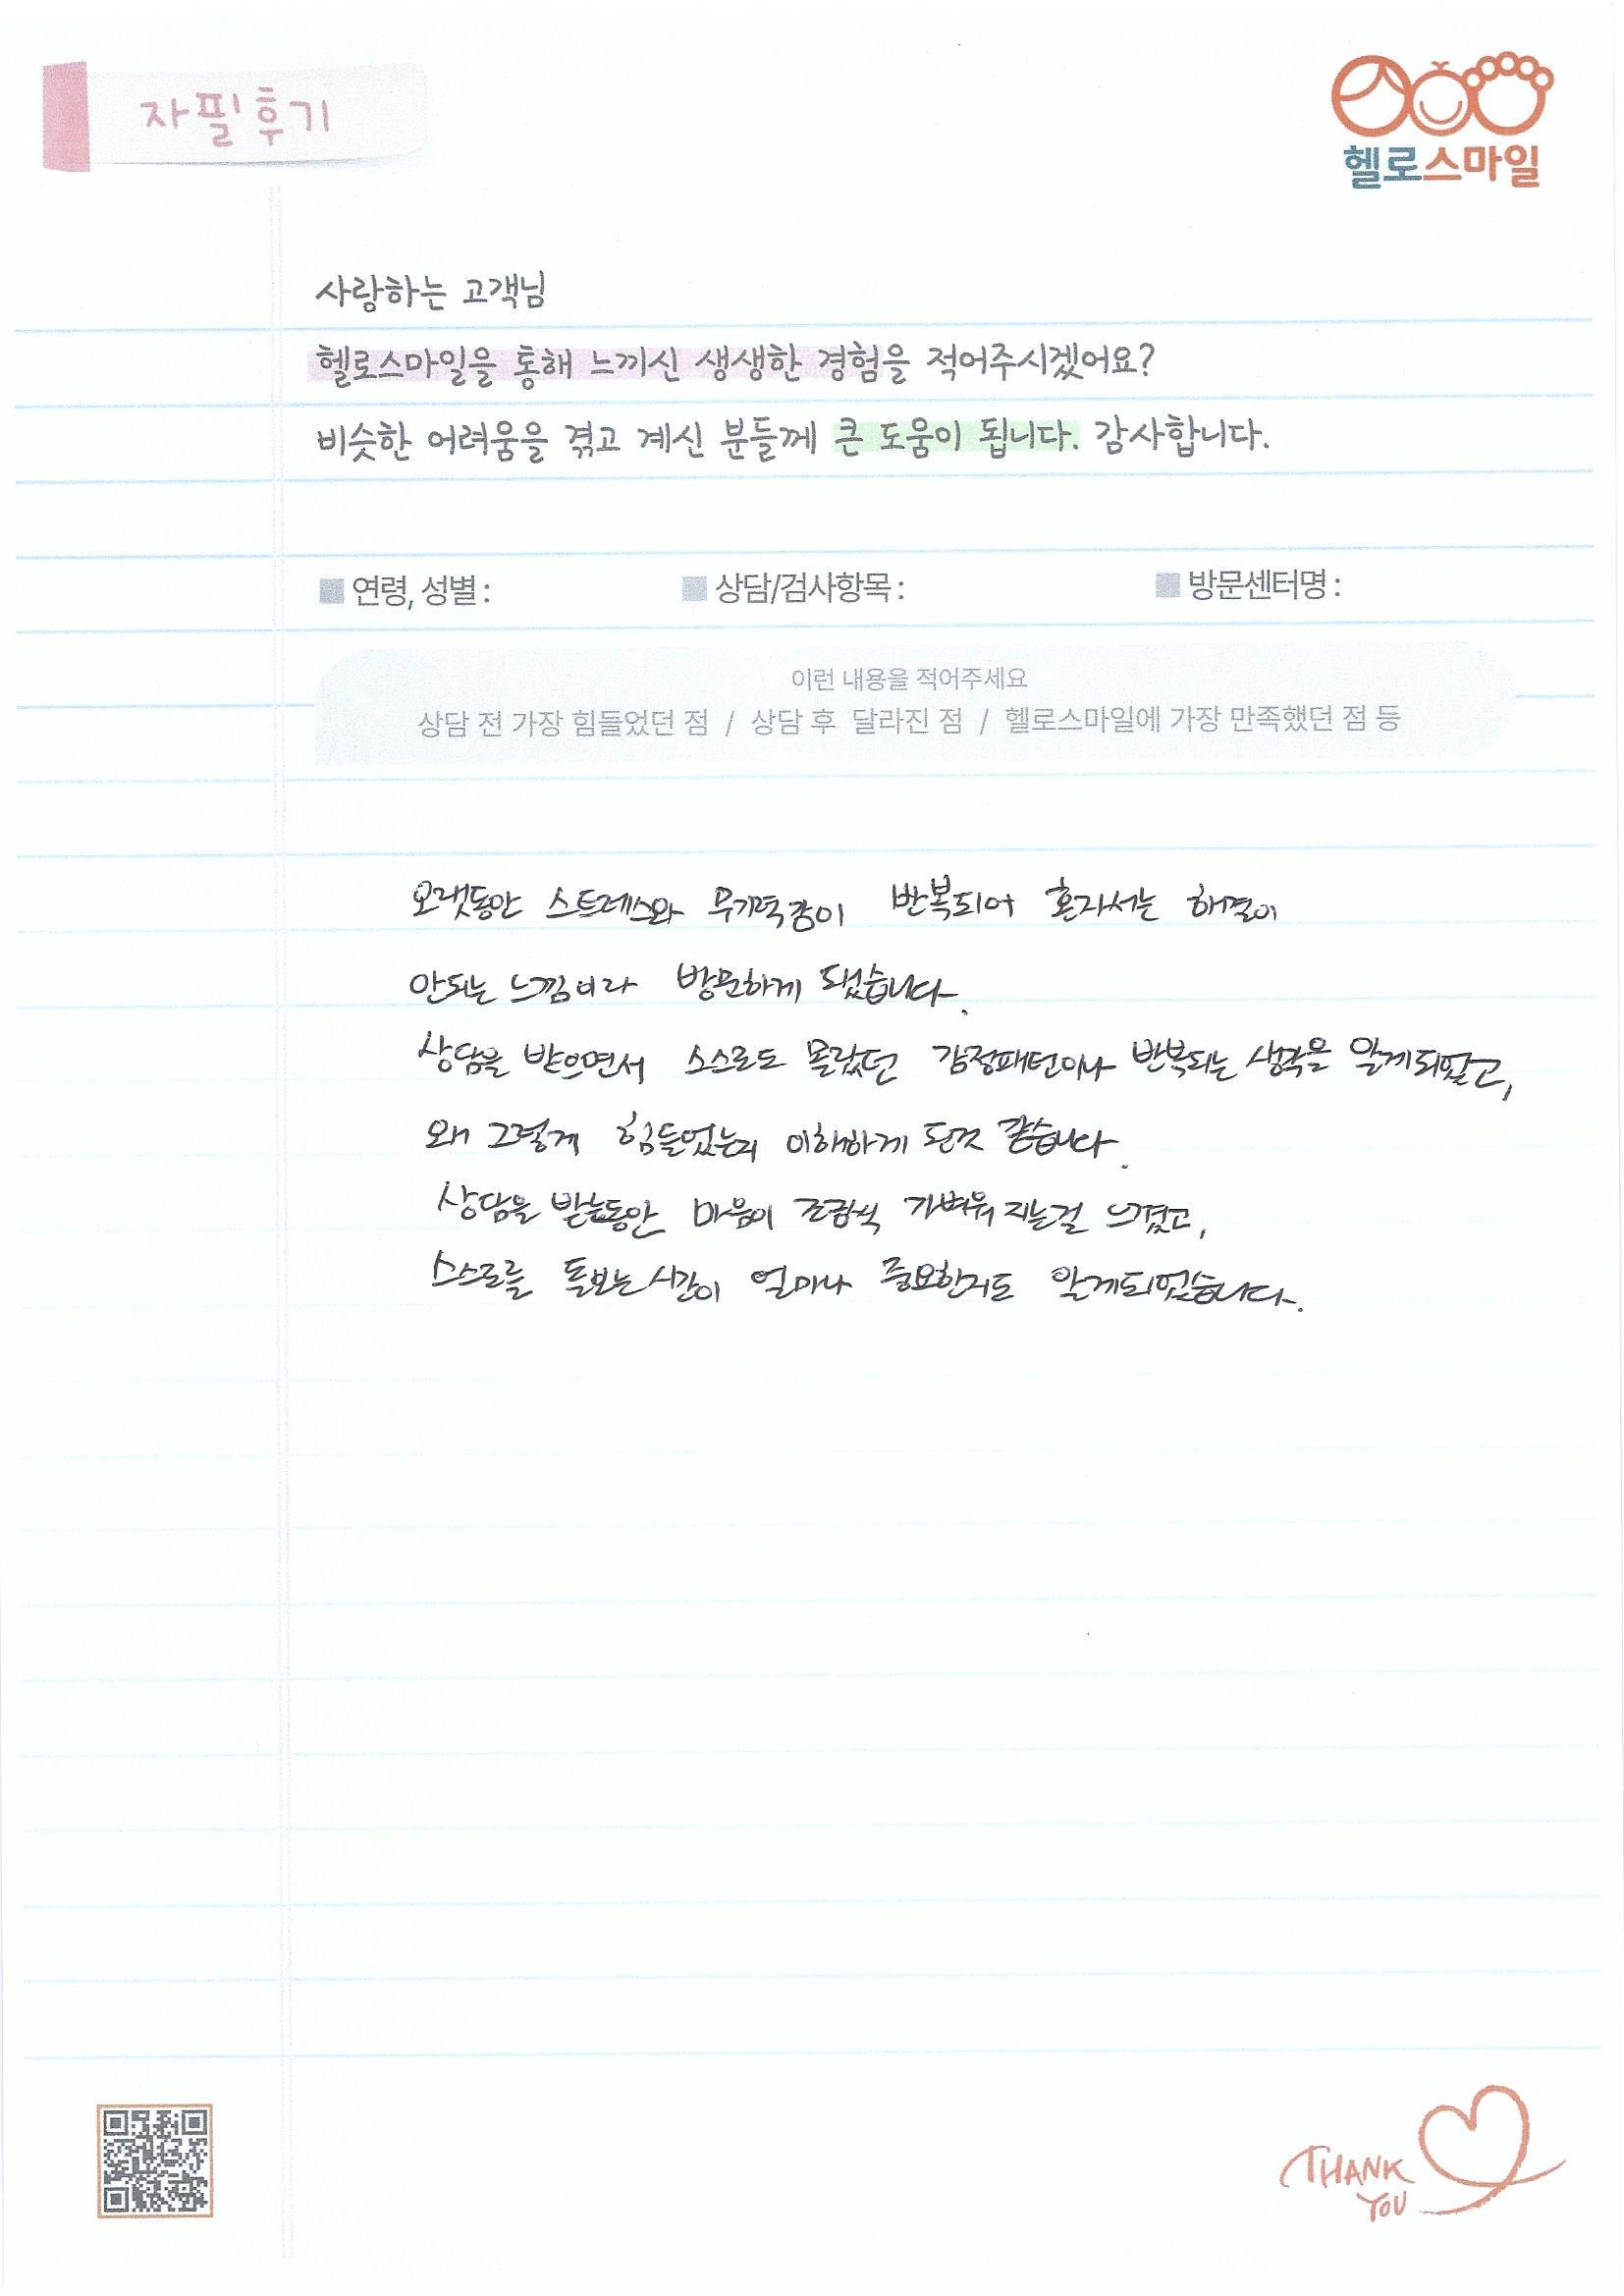 자필후기
헬로스마일
사랑하는 고객님
헬로스마일을 통해 느끼신 생생한 경험을 적어주시겠어요?
비슷한 어려움을 겪고 계신 분들께 큰 도움이 됩니다. 감사합니다.
연령, 성별 : 상담/검사항목 : 방문센터명 :
이런 내용을 적어주세요
상담 전 가장 힘들었던 점 / 상담 후 달라진 점 / 헬로스마일에 가장 만족했던 점 등
오랫동안 스트레스와 무기력감이 반복되어 혼자서는 해결이
안되는 느낌이라 방문하게 됐습니다.
상담을 받으면서 스스로도 몰랐던 감정패턴이나 반복되는 생각을 알게되었고,
왜 그렇게 힘들었는지 이해하게 된것 같습니다.
상담을 받는동안 마음이 조금씩 가벼워 지는걸 느꼈고,
스스로를 돌보는 시간이 얼마나 중요한지도 알게되었습니다.
THANK
YOU